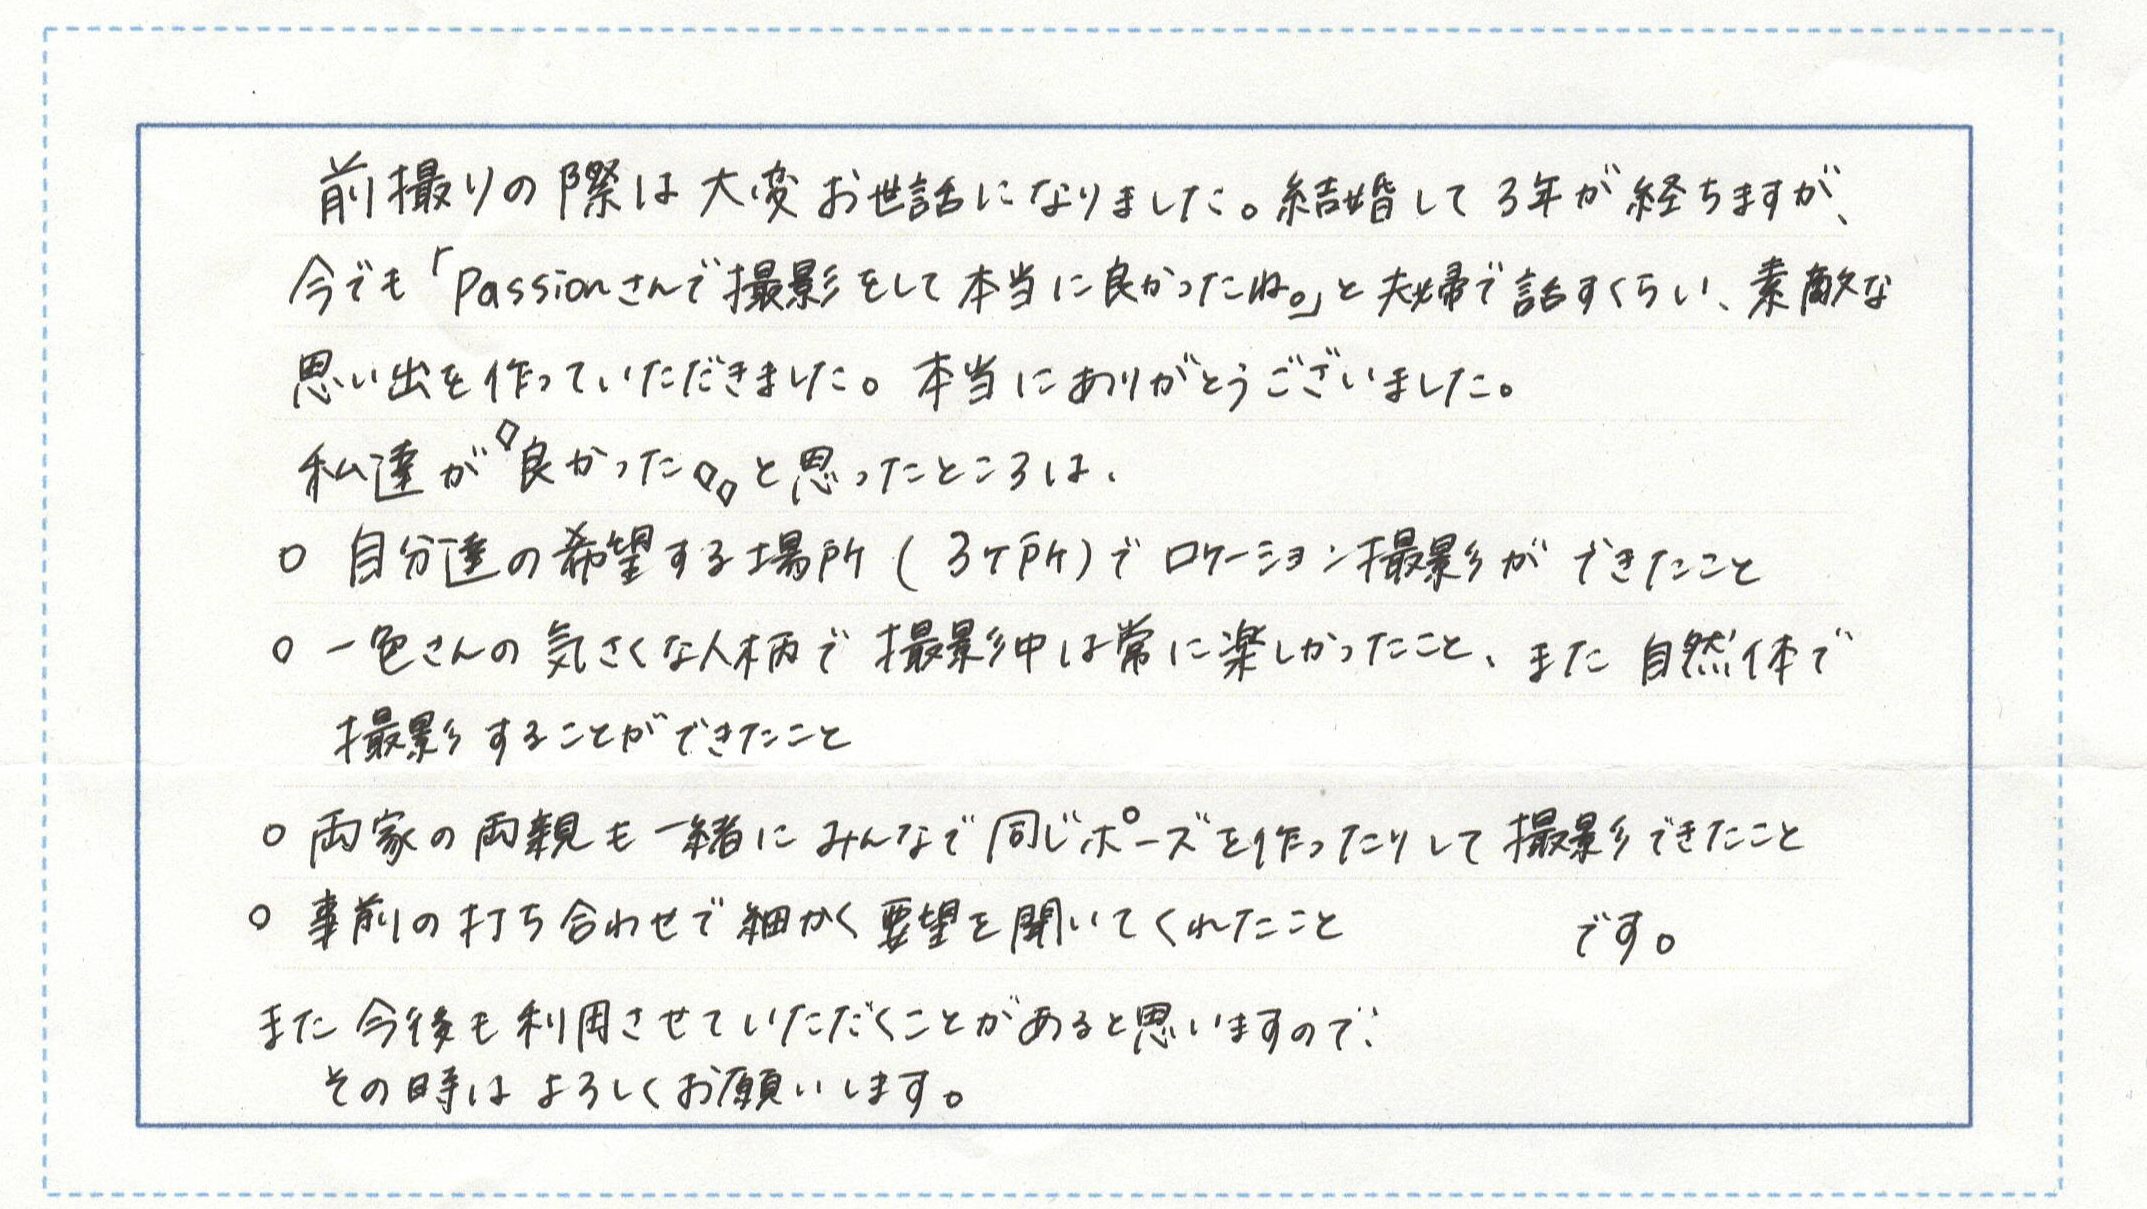 前撮りの際は大変お世話になりました。結婚して3年が経ちますが、
今でも「Passionさんで撮影をして本当に良かったね。」と夫婦で話すくらい、素敵な
思い出を作っていただきました。本当にありがとうございました。
私達が"良かった"と思ったところは、
○ 自分達の希望する場所(3ヶ所)でロケーション撮影ができたこと
○ 一色さんの気さくな人柄で撮影中は常に楽しかったこと、また自然体で
撮影することができたこと
○ 両家の両親も一緒にみんなで同じポーズを作ったりして撮影できたこと
○ 事前の打ち合わせで細かく要望を聞いてくれたこと です。
また今後も利用させていただくことがあると思いますので、
その時はよろしくお願いします。